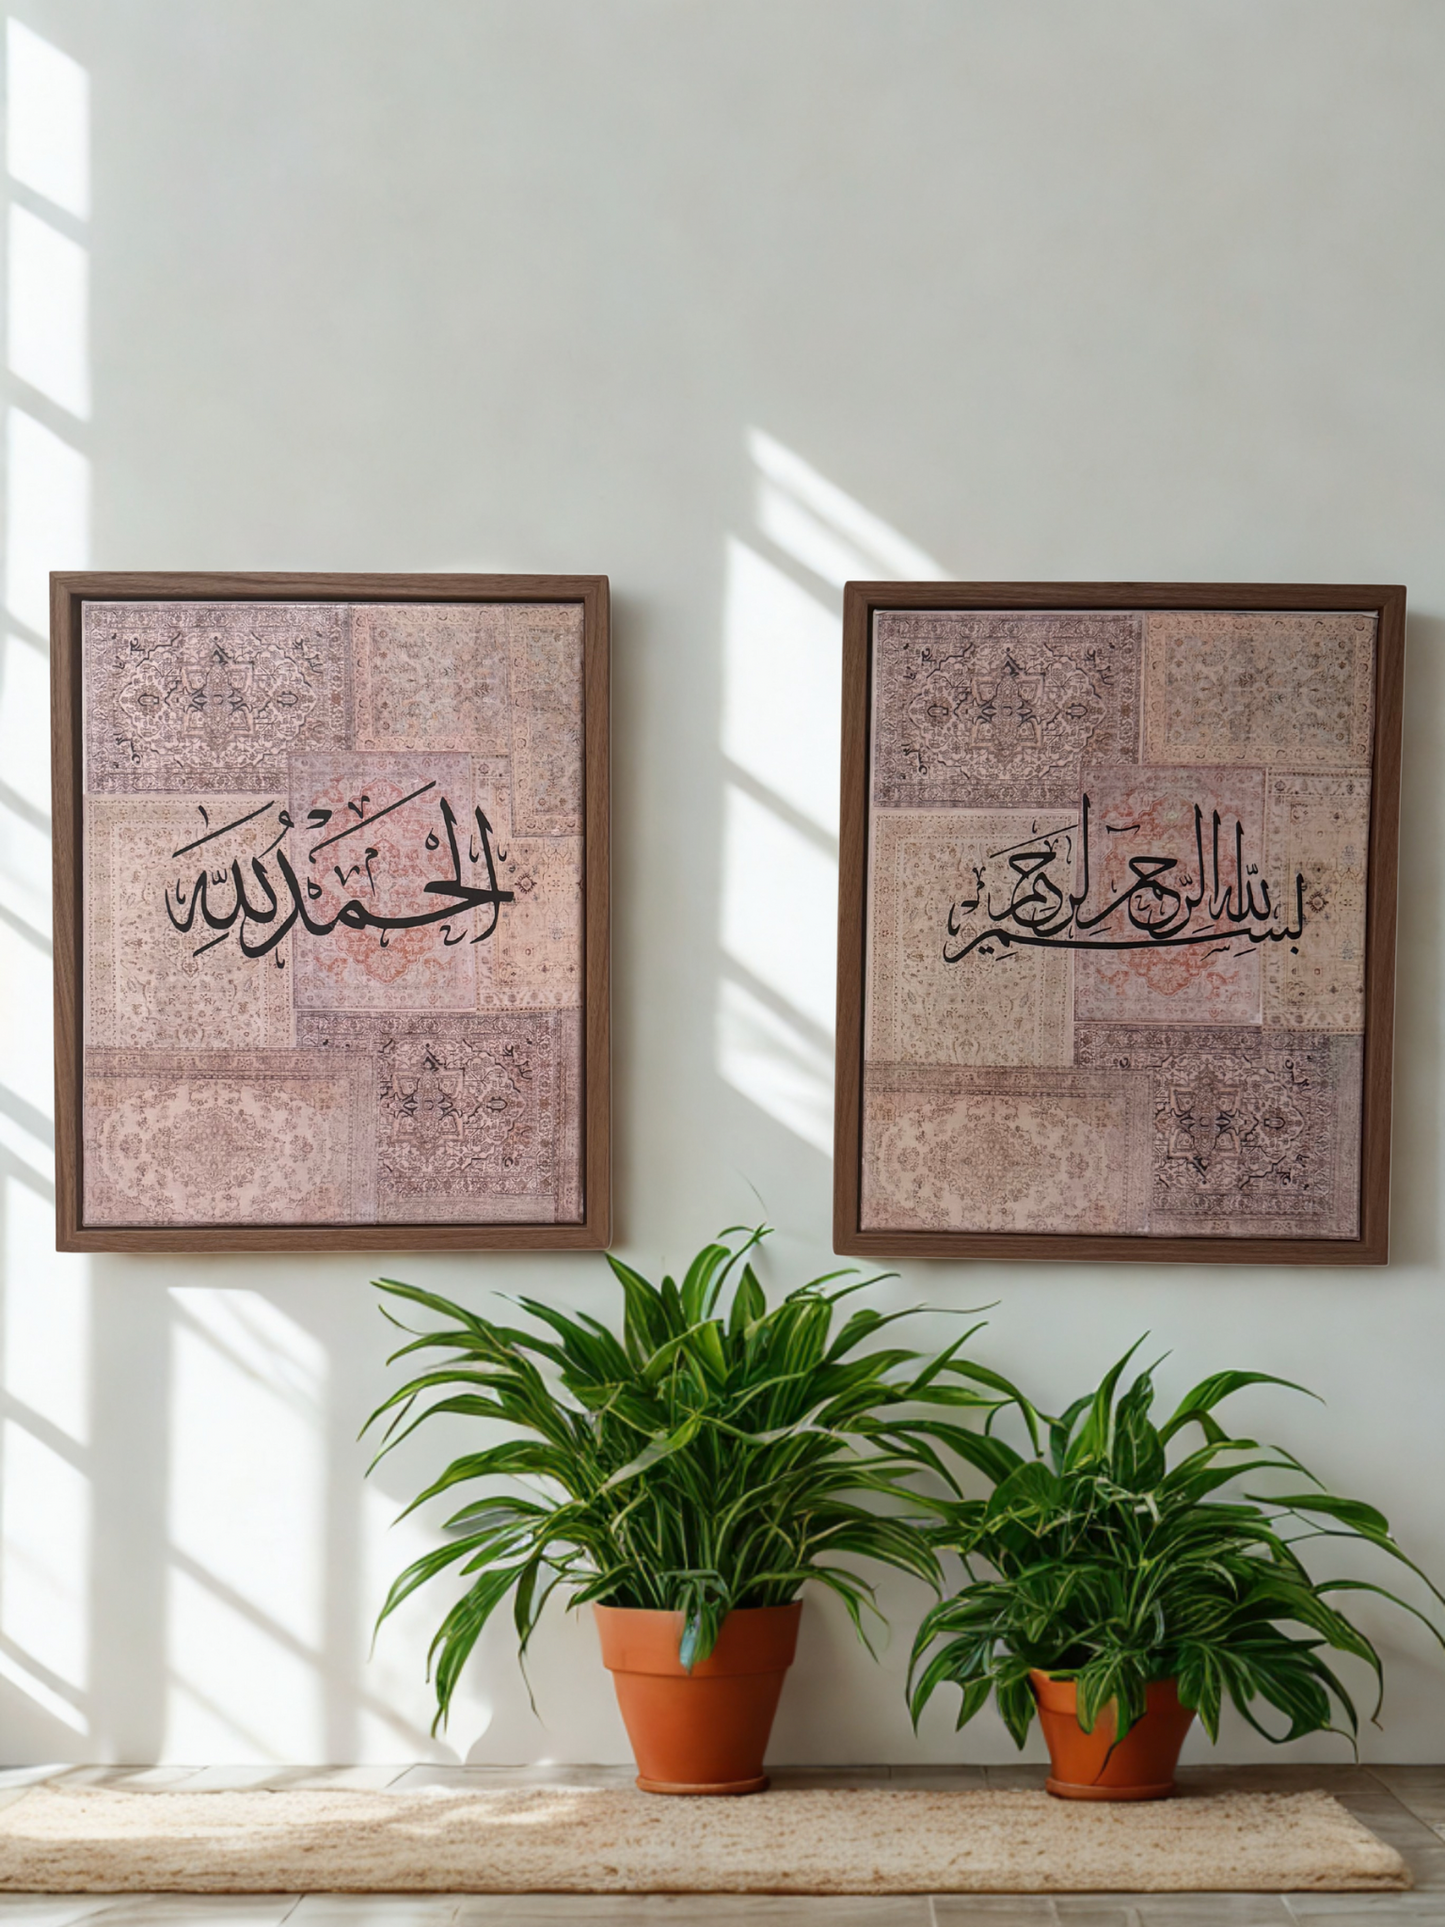 الْحَمْدُ لِلَّهِ
بسم الله الرحمن الرحيم